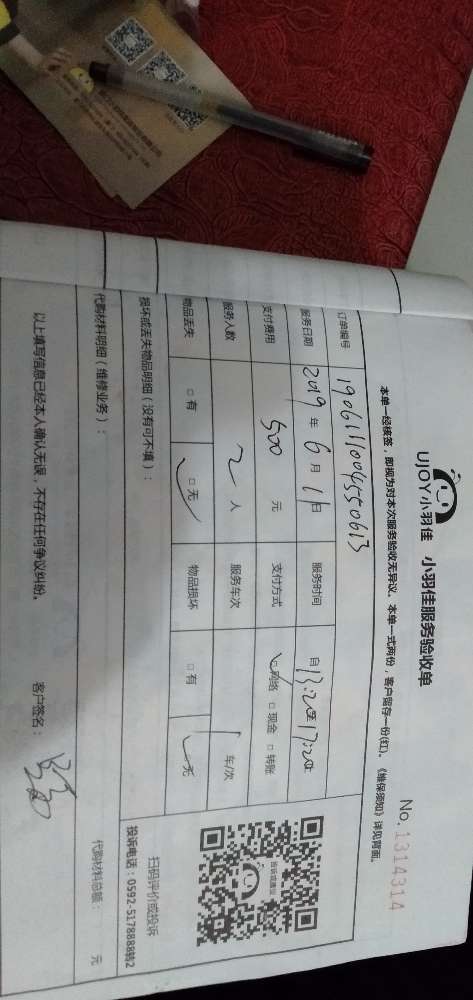 UJOY小羽佳 小羽佳服务验收单
No. 1314314
本单一经核签，即视为对本次服务验收无异议。本单一式两份，客户留存一份(红)。《维保须知》详见背面。
订单编号 1906111004550613
服务日期 2019年6月11日 服务时间 自13:20至17:20止
支付费用 500元 支付方式 ☑网络 □现金 □转账
服务人数 2人 服务车次 1车/次
物品丢失 □有 ☑无 物品损坏 □有 ☑无
损坏或丢失物品明细（没有可不填）：
代购材料明细（维修业务）：
代购材料总额： 元
以上填写信息已经本人确认无误，不存在任何争议纠纷。
客户签名：
投诉或建议
扫码评价或投诉
投诉电话：0592-5178888转2